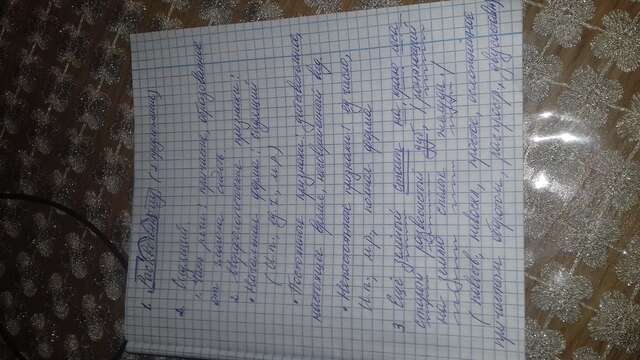 1. (2 предложение)
2. Сидящий
1. Часть речи: причастие, образованное
от глагола сидеть
2. Морфологические признаки:
• Начальная форма: сидящий
(И.п., ед.ч., м.р.)
• Постоянные признаки: действительное,
настоящее время, несовершенный вид.
• Непостоянные признаки: ед число,
И.п., м.р, полная форма
3. Ещё зелёный стоит на краю леса
старый развесистый дуб, роняющий
на землю спелые желуди.
(повеств, невоскл, простое, осложнённое
причастным оборотом, распростр, двусостав)